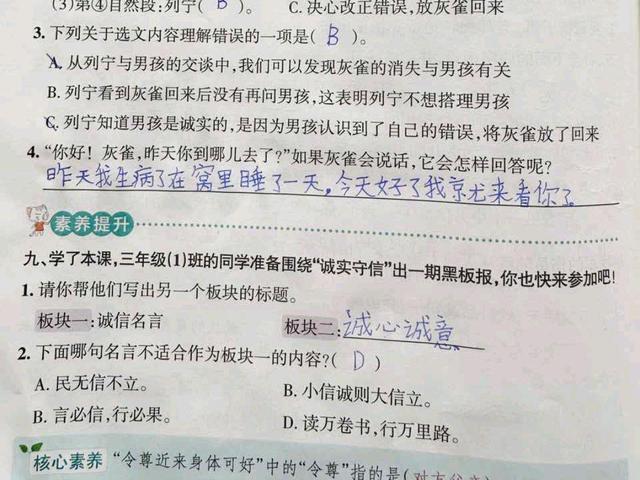 (3)第④自然段:列宁( B )。 C. 决心改正错误,放灰雀回来
3. 下列关于选文内容理解错误的一项是( B )。
A. 从列宁与男孩的交谈中,我们可以发现灰雀的消失与男孩有关
B. 列宁看到灰雀回来后没有再问男孩,这表明列宁不想搭理男孩
C. 列宁知道男孩是诚实的,是因为男孩认识到了自己的错误,将灰雀放了回来
4. “你好！灰雀,昨天你到哪儿去了?”如果灰雀会说话,它会怎样回答呢?
昨天我生病了在窝里睡了一天,今天好了我京尤来看你了
素养提升
九、学了本课,三年级(1)班的同学准备围绕“诚实守信”出一期黑板报,你也快来参加吧!
1. 请你帮他们写出另一个板块的标题。
板块一:诚信名言 板块二:诚心诚意
2. 下面哪句名言不适合作为板块一的内容?( D )
A. 民无信不立。 B. 小信诚则大信立。
B. 言必信,行必果。 D. 读万卷书,行万里路。
核心素养 “令尊近来身体可好”中的“令尊”指的是(